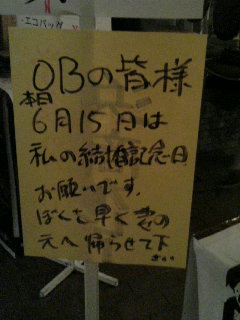 エコバッグ
OBの皆様
本日
6月15日は
私の結婚記念日
お願いです。
ぼくを早く妻の
元へ帰らせて下
さい